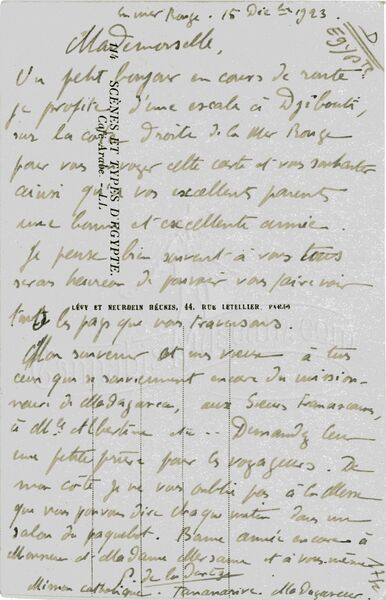 en mer Rouge. 15 Déc bre 1923.
D
EGYPTE
Mademoiselle,
Un petit bonjour en cours de route
je profite d'une escale à Djibouti,
sur la côte droite de la Mer Rouge
pour vous envoyer cette carte et vous souhaiter
ainsi qu'à vos excellents parents
une bonne et excellente année.
Je pense bien souvent à vous tous
serais heureux de pouvoir vous faire voir
tous les pays que nous traversons.
Mon souvenir et mes voeux à tous
ceux qui se souviennent encore du mission-
naire de Madagascar, aux Soeurs
à Mlle Albertine etc -- Demandez leur
une petite prière pour les voyageurs. De
mon côté je ne vous oublie pas à la Messe
que nous pouvons dire chaque matin dans un
salon du paquebot. Bonne année encore à
Monsieur et Madame et à vous-même
P. de la
Mission catholique. Tananarive. Madagascar
114 SCÈNES ET TYPES D'ÉGYPTE.
Café Arabe. - LL.
LÉVY ET NEURDEIN RÉUNIS, 44, RUE LETELLIER, PARIS